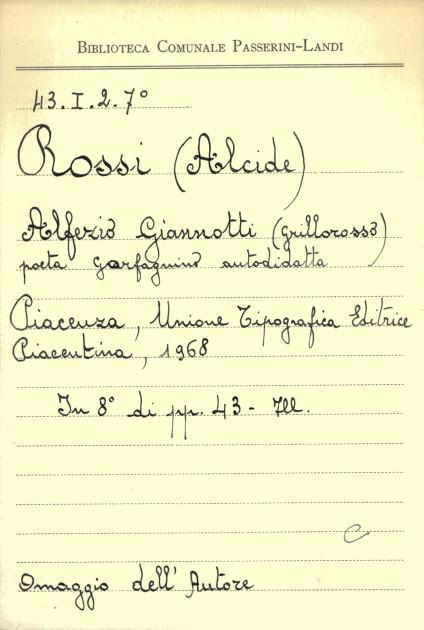 BIBLIOTECA COMUNALE PASSERINI-LANDI
43.I.2.7°
Rossi (Alcide)
Alferio Giannotti (grillorosso)
poeta garfagnino autodidatta
Piacenza, Unione Tipografica Editrice
Piacentina, 1968
In 8° di pp. 43 - Ill.
C
Omaggio dell'Autore